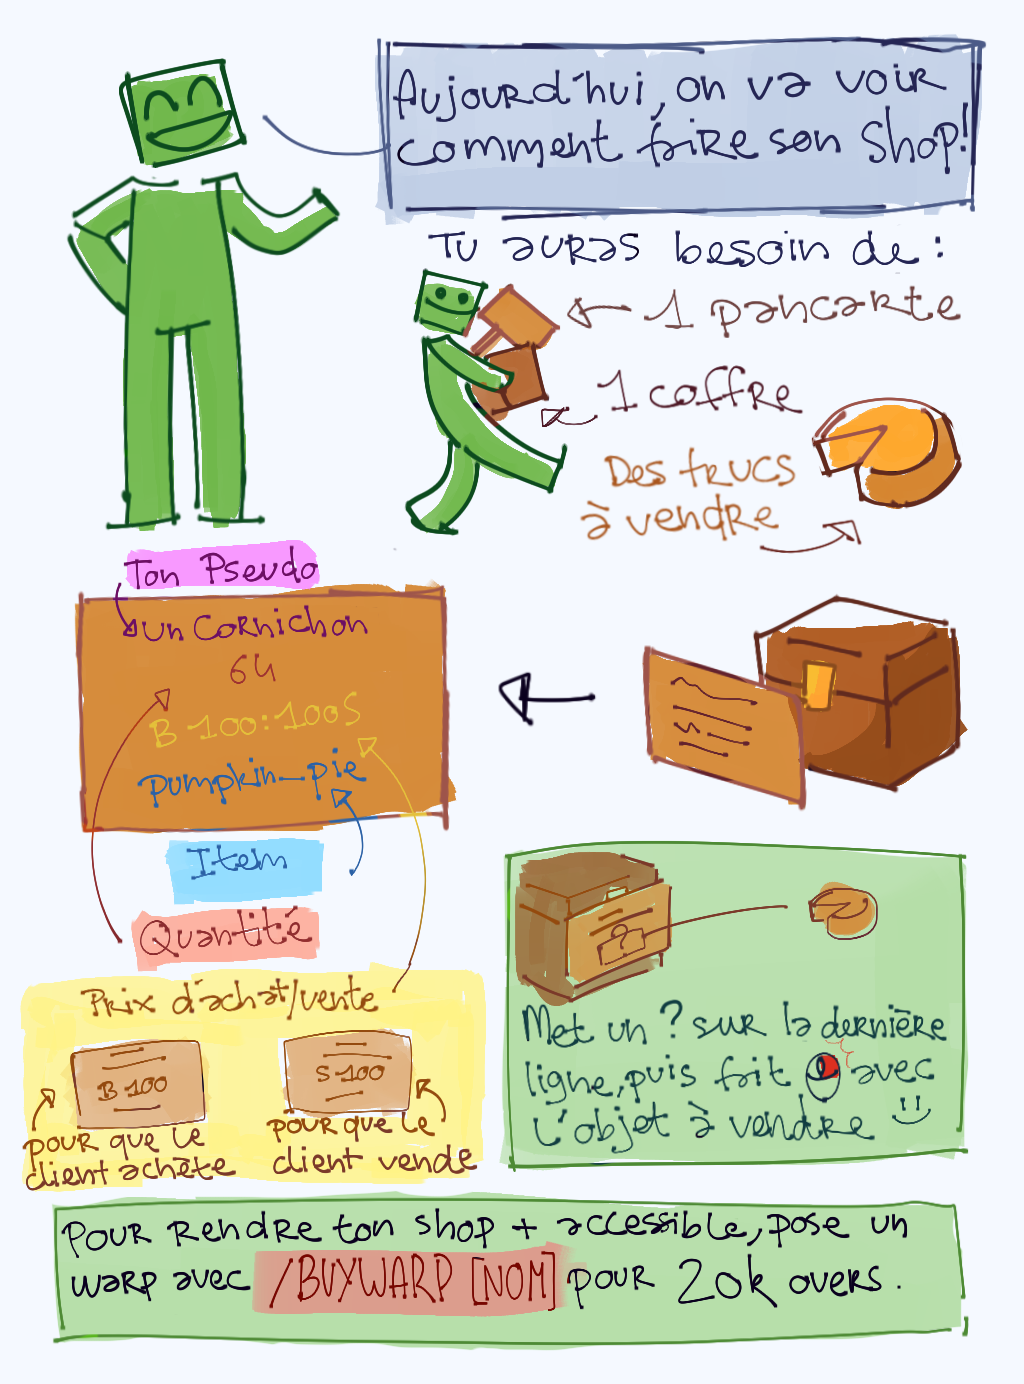 Aujourd'hui, on va voir
comment faire son Shop!
Tu auras besoin de :
1 pancarte
1 coffre
Des trucs
à vendre
Ton Pseudo
Un Cornichon
64
B 100:100S
pumpkin_pie
Item
Quantité
Prix d'achat/vente
B 100
S 100
pour que le
client achète
pour que le
client vende
?
Met un ? sur la dernière
ligne, puis fait avec
L'objet à vendre
Pour rendre ton shop + accessible, pose un
warp avec /BUYWARP [NOM] pour 20k overs.